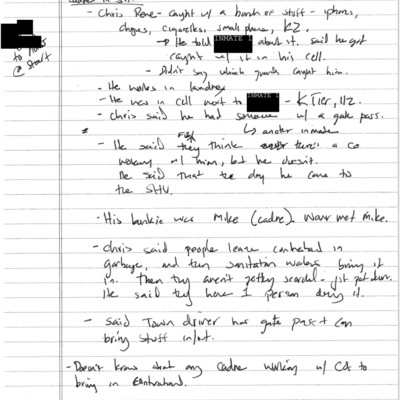 - Chris Rene - caught w/ a bunch of stuff - iphones,
chargers, cigarettes, small phone, K2.
→ He told INMATE 1 about it. said he got
caught w/ it in his cell.
- Didn't say which guards caught him.
- He works in laundry
- He was in cell next to INMATE 1 - K Tier, 112.
- Chris said he had someone w/ a gate pass.
↳ another inmate
- He said they think there's a CO
working w/ him, but he doesn't.
He said that the day he came to
the SHU.
- His bunkie was Mike (cadre). Never met Mike.
- Chris said people leave contraband in
garbage, and then sanitation workers bring it
in. Then they aren't getting searched - just pat down.
He said they have 1 person doing it.
- said Town driver has gate pass + can
bring stuff in/out.
- Doesn't know about any cadre working w/ COs to
bring in contraband.
to
@ start